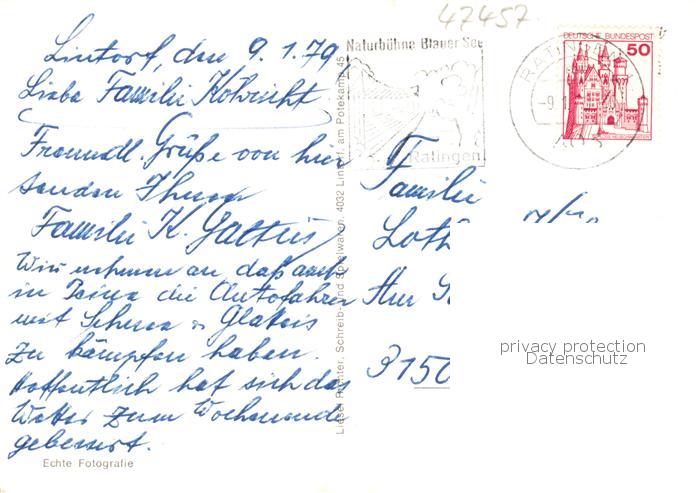 47457
Lintorf, den 9.1.79
Liebe Familie
Freundl. Grüße von hier
senden Ihnen
Familie K.
Wir nehmen an, daß auch
in Peine die Autofahrer
mit Schnee u. Glatteis
zu kämpfen haben.
Hoffentlich hat sich das
Wetter zum Wochenende
gebessert.
Echte Fotografie
Liesel Richter, Schreib- und Spielwaren, 4032 Lintorf, am Potekamp 45
Naturbühne Blauer See
Ratingen
DEUTSCHE BUNDESPOST
50
RATINGEN
-9.1
Familie
Loth
3150
privacy protection
Datenschutz